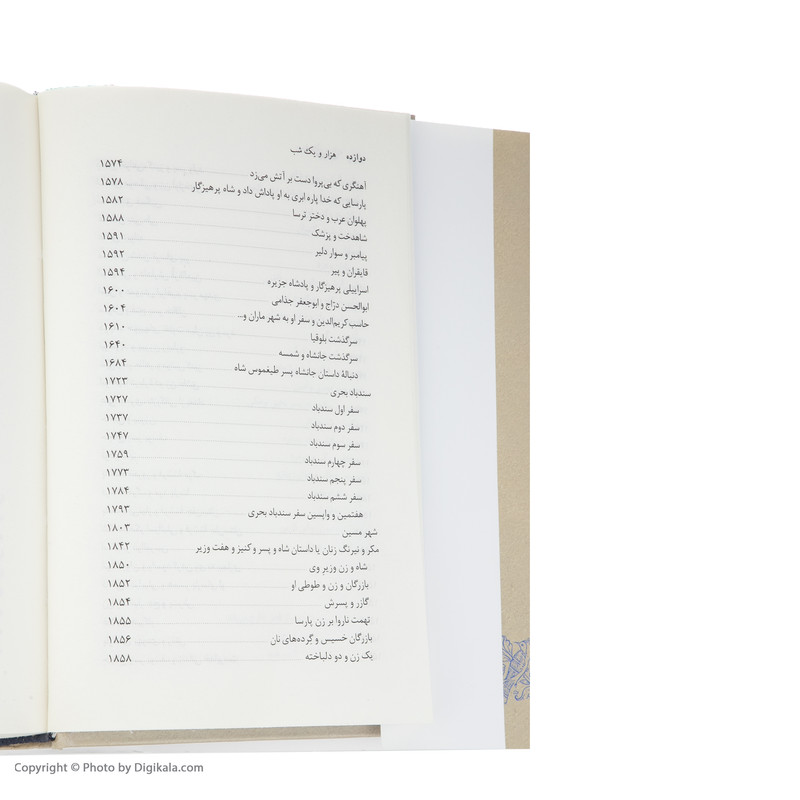 دوازده هزار و یک شب
آهنگری که بی‌پروا دست بر آتش می‌زد ۱۵۷۴
پارسایی که خدا پاره ابری به او پاداش داد و شاه پرهیزگار ۱۵۷۸
پهلوان عرب و دختر ترسا ۱۵۸۲
شاهدخت و پزشک ۱۵۸۸
پیامبر و سوار دلیر ۱۵۹۱
قایقران و پیر ۱۵۹۲
اسراییلی پرهیزگار و پادشاه جزیره ۱۵۹۴
ابوالحسن درّاج و ابوجعفر جذامی ۱۶۰۰
حاسب کریم‌الدین و سفر او به شهر ماران و... ۱۶۰۴
سرگذشت بلوقیا ۱۶۱۰
سرگذشت جانشاه و شمسه ۱۶۴۰
دنبالهٔ داستان جانشاه پسر طیغموس شاه ۱۶۸۴
سندباد بحری ۱۷۲۳
سفر اول سندباد ۱۷۲۷
سفر دوم سندباد ۱۷۳۷
سفر سوم سندباد ۱۷۴۷
سفر چهارم سندباد ۱۷۵۹
سفر پنجم سندباد ۱۷۷۳
سفر ششم سندباد ۱۷۸۴
هفتمین و واپسین سفر سندباد بحری ۱۷۹۳
شهر مسین ۱۸۰۳
مکر و نیرنگ زنان یا داستان شاه و پسر و کنیز و هفت وزیر ۱۸۴۲
شاه و زن وزیر وی ۱۸۵۰
بازرگان و زن و طوطی او ۱۸۵۲
گازر و پسرش ۱۸۵۴
تهمت ناروا بر زن پارسا ۱۸۵۵
بازرگان خسیس و گرده‌های نان ۱۸۵۶
یک زن و دو دلباخته ۱۸۵۸
Copyright © Photo by Digikala.com